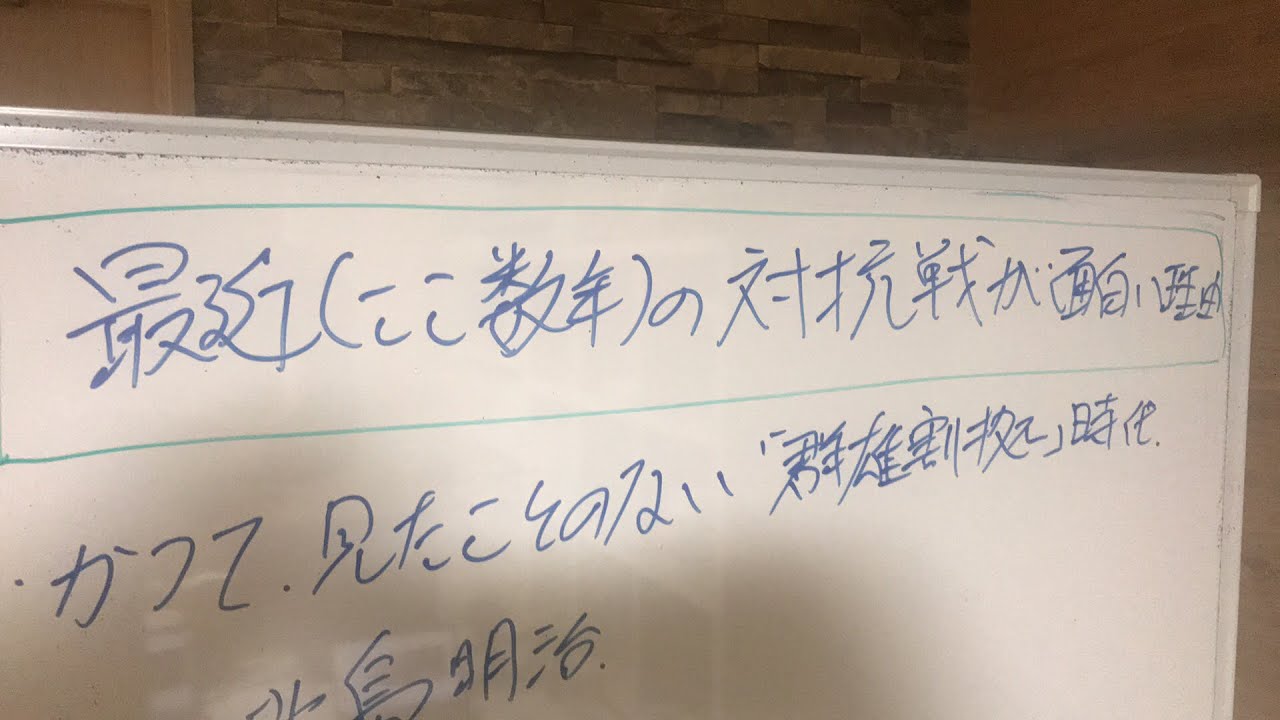 最近(ここ数年)の対抗戦が面白い理由
・かつて、見たことのない「群雄割拠」時代.
北島明治.